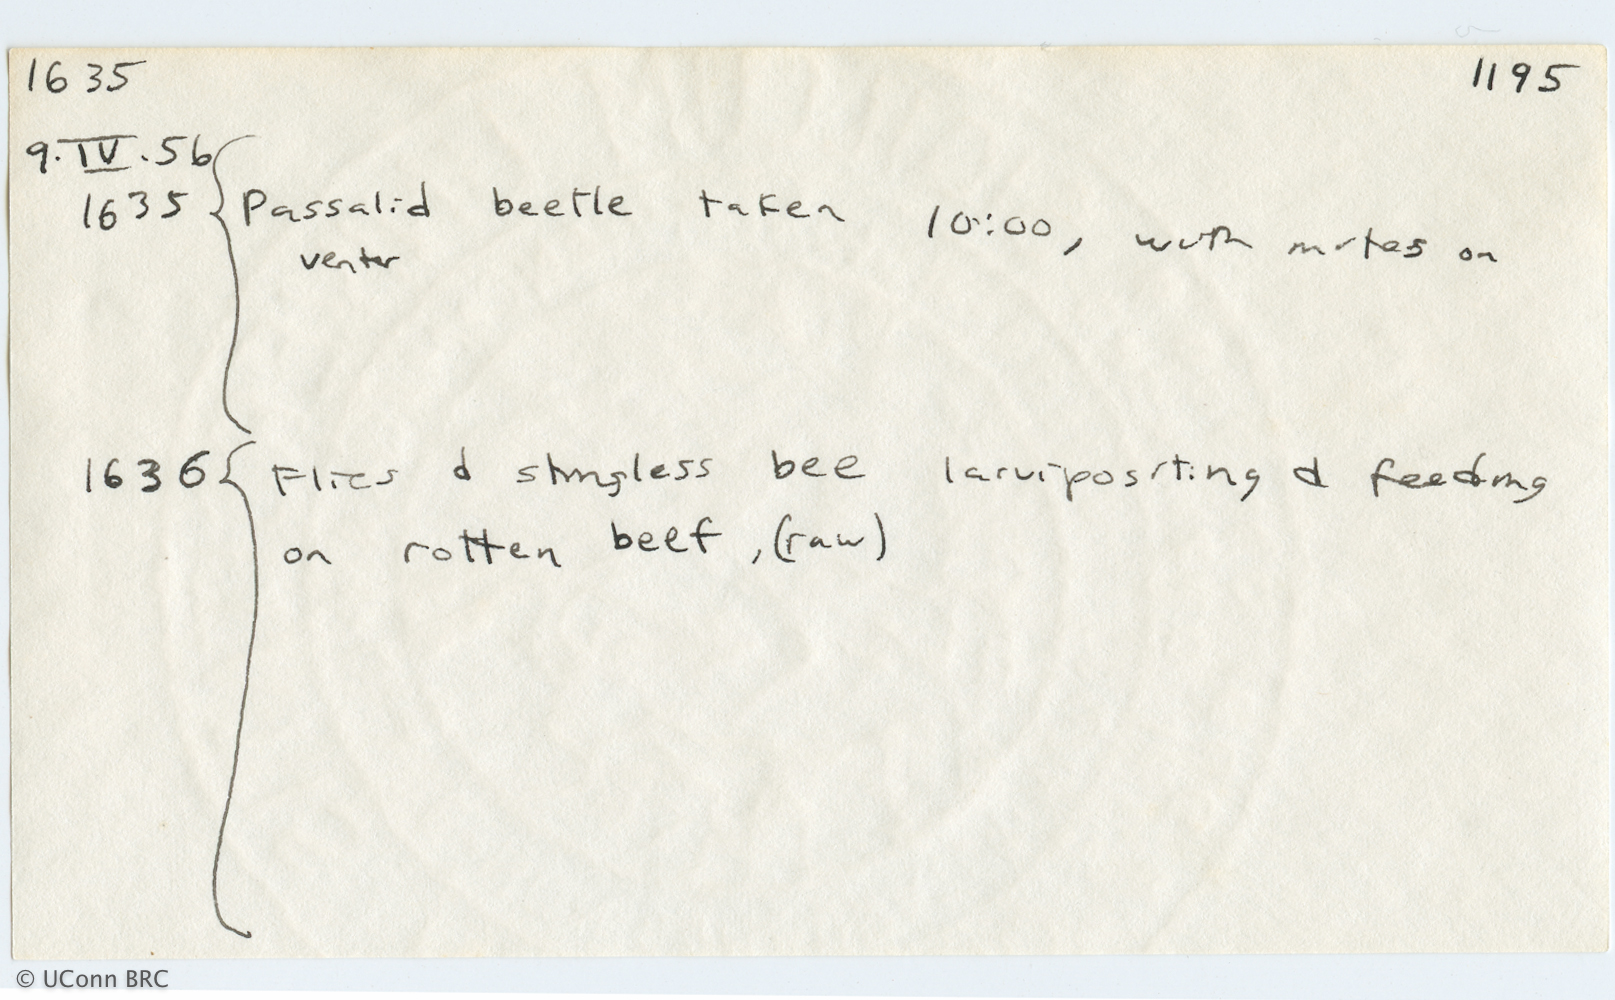 1635 1195
9.IV.56
1635 { Passalid beetle taken 10:00, with mites on
venter
1636 { Flies & stingless bee larvipositing & feeding
on rotten beef, (raw)
© UConn BRC